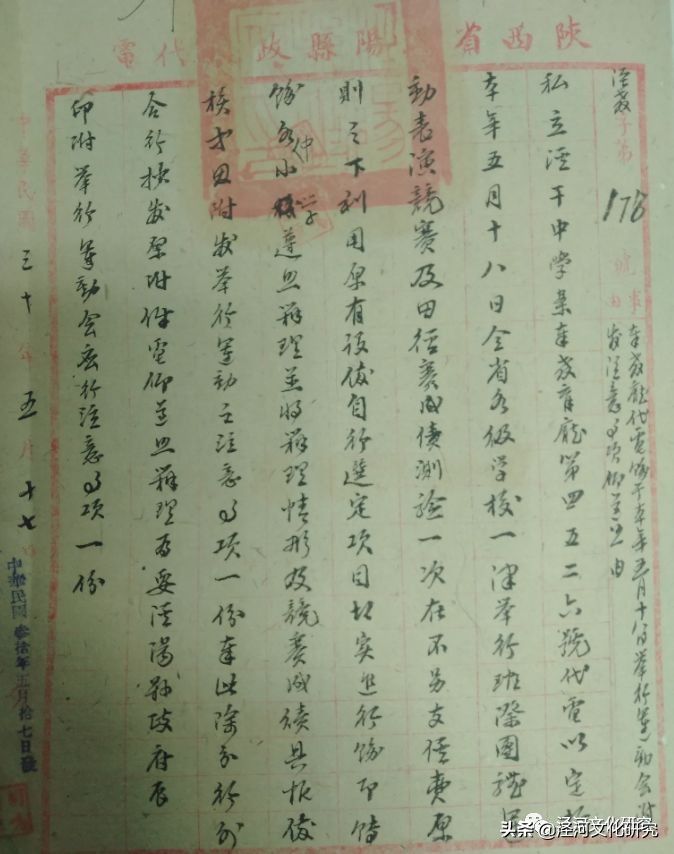 陕西省 陽縣政 代電
涇教字第178號
事由 奉教廳代電飭于本年五月十八日舉行運動會附
發注意事項仰遵照由
私立涇干中學案奉教育廳第四五二六號代電以定於
本年五月十八日全省各級学校一津举行班際團體運
動表演競賽及田徑賽成績測驗一次在不另支經費原
則之下利用原有设备自行選定項目切实進行飭即轉
飭各小仲学遵照辦理並将辦理情形及競賽成績具报
核为 附发举行運動 注意事項一份奉此除分行外
合行檢发原附件電仰遵照辦理为要涇陽縣政府辰
印附举行運動会应行注意事項一份
中華民國三十年五月十七日
中華民國叁拾年五月拾七日發
头条@泾河文化研究
泾河文化研究